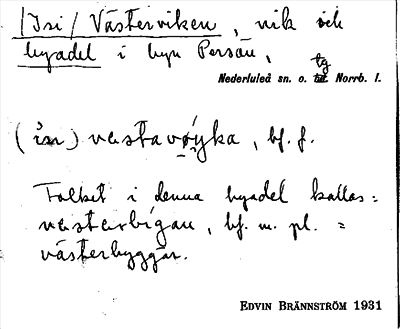 /Isi/ Västerviken, vik och
byadel i byn Persön,
Nederluleå sn. o. tg Norrb. l.
(in) vastavøyka, bf. f.
Folket i denna byadel kallas:
vastarbigan, bf. m. pl. =
västerbyggar.
EDVIN BRÄNNSTRÖM 1931